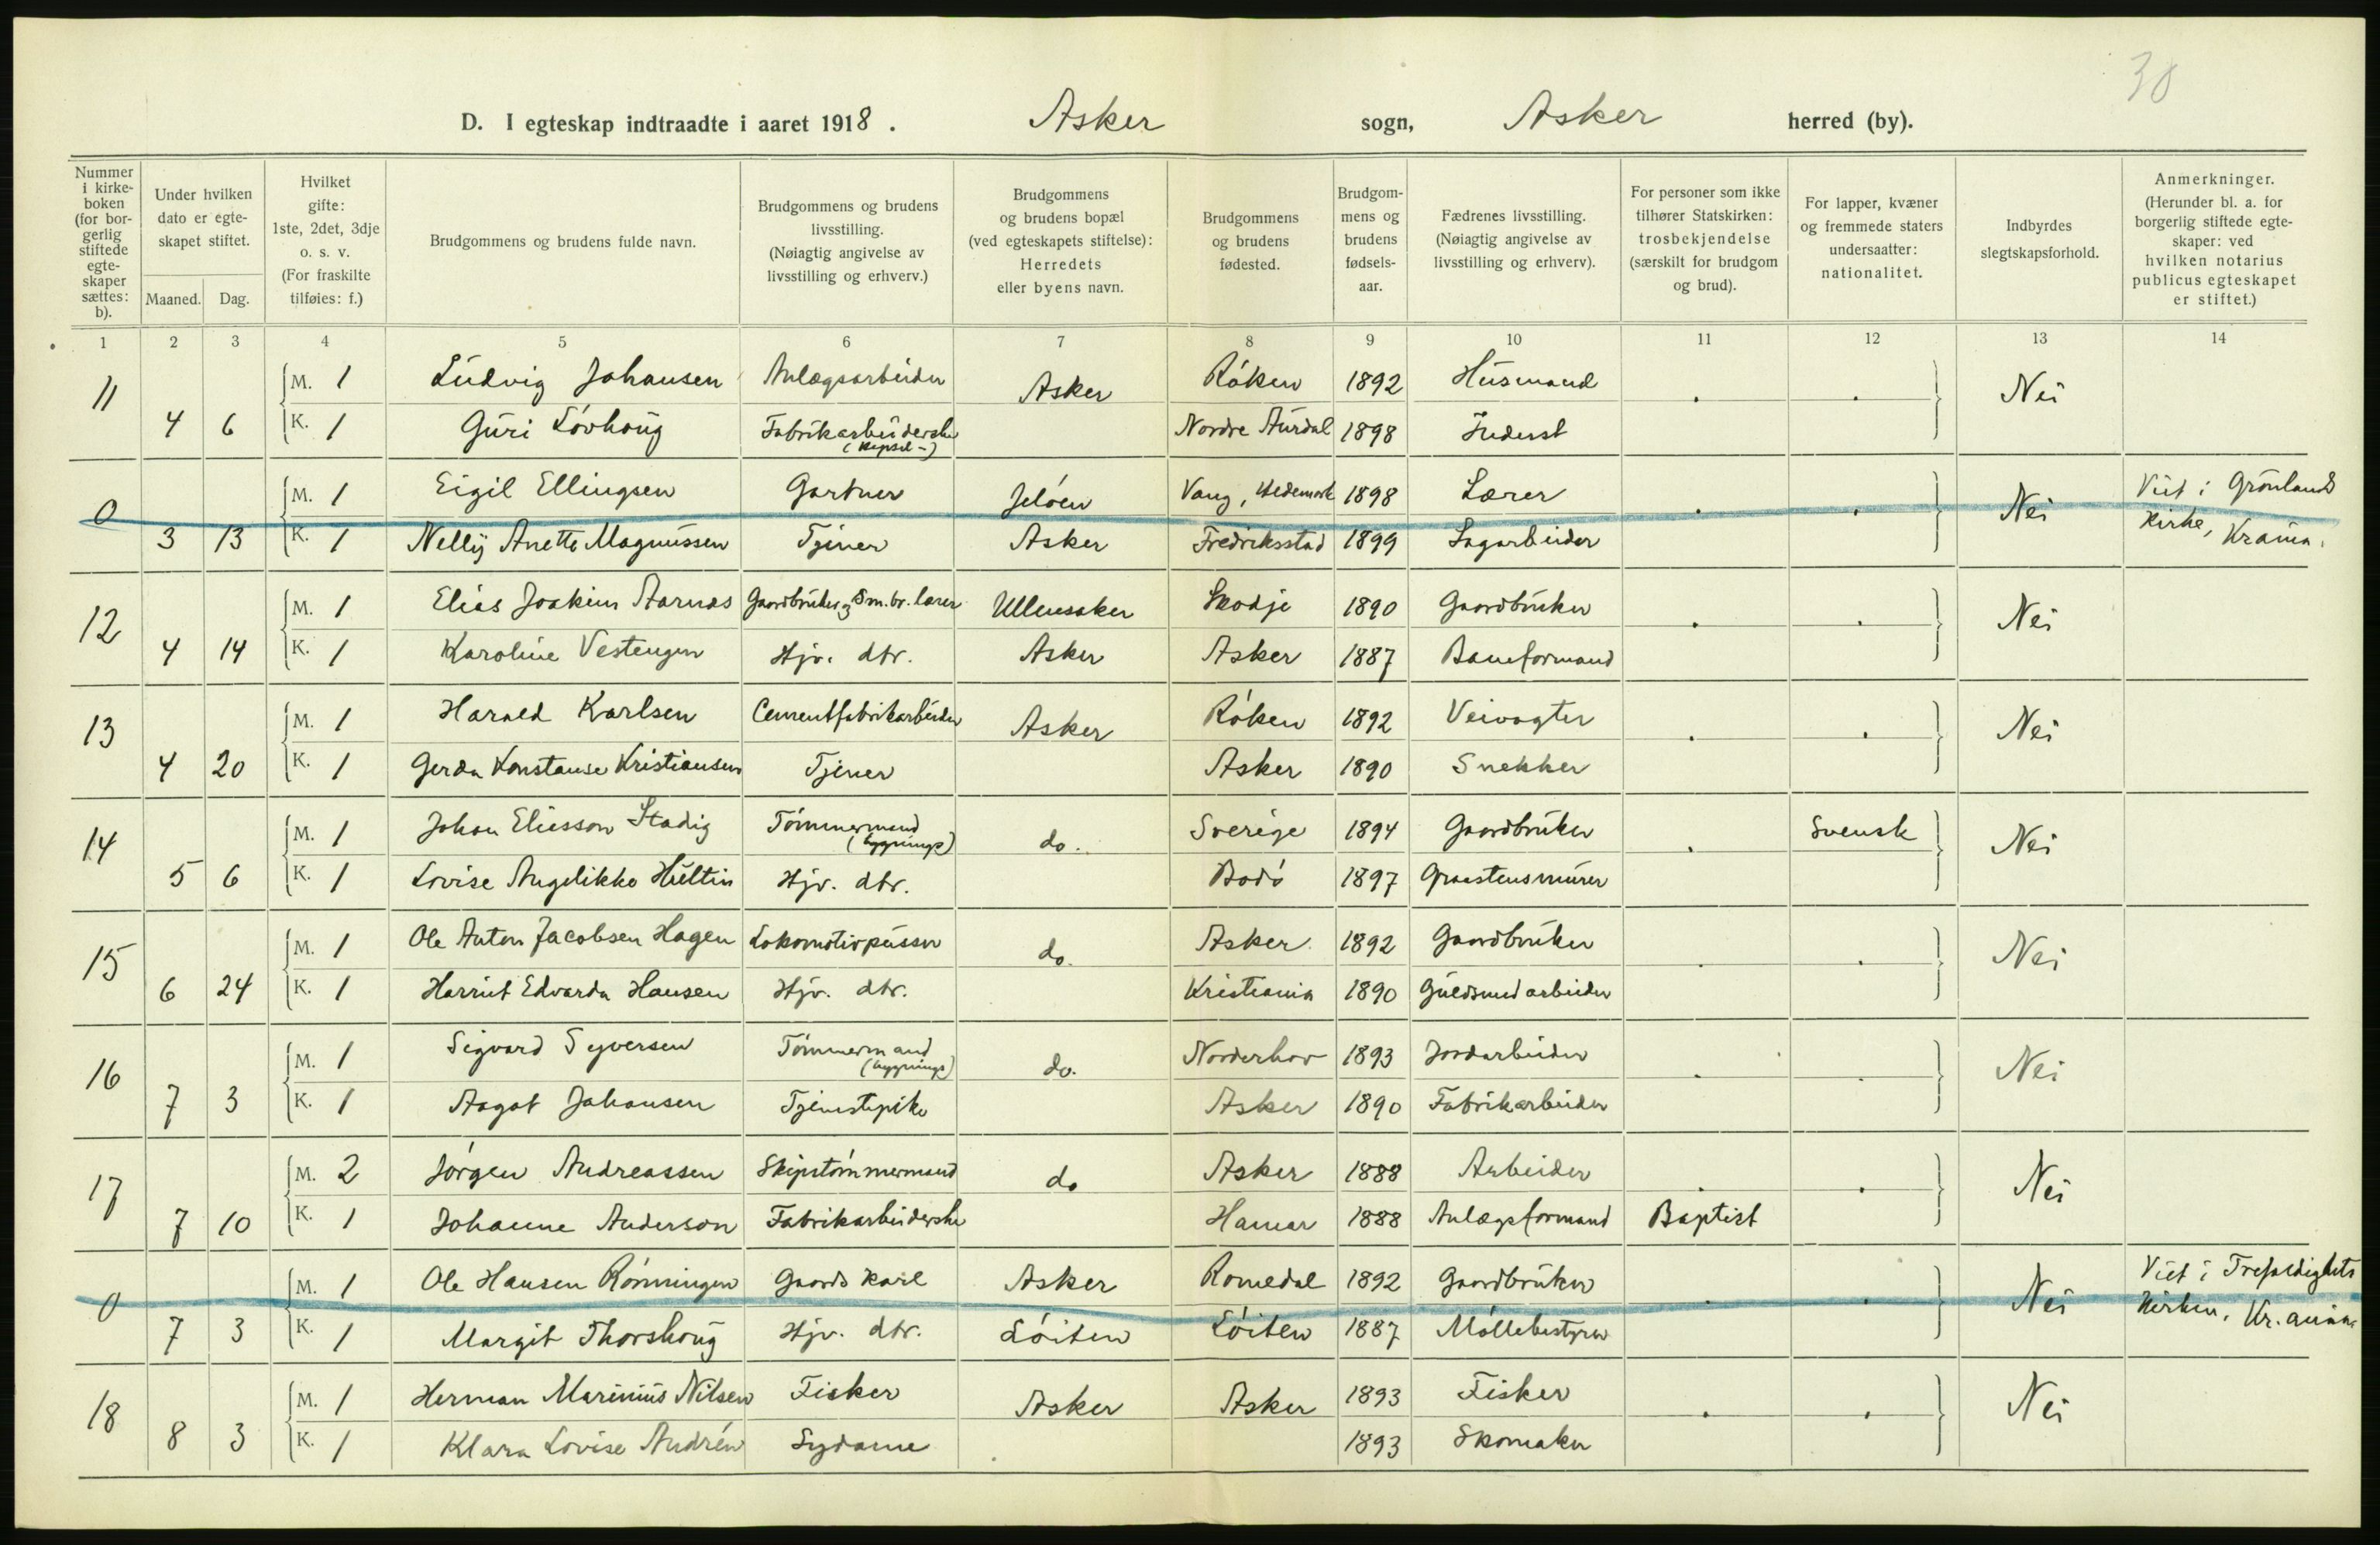 30
D. I egteskap indtraadte i aaret 1918. Asker sogn, Asker herred (by).
Nummer i kirke-boken (for bor-gerlig stiftede egte-skaper sættes: b).
Under hvilken dato er egte-skapet stiftet.
Maaned. Dag.
Hvilket gifte: 1ste, 2det, 3dje o. s. v. (For fraskilte tilføies: f.)
Brudgommens og brudens fulde navn.
Brudgommens og brudens livsstilling. (Nøiagtig angivelse av livsstilling og erhverv.)
Brudgommens og brudens bopæl (ved egteskapets stiftelse): Herredets eller byens navn.
Brudgommens og brudens fødested.
Brudgom-mens og brudens fødsels-aar.
Fædrenes livsstilling. (Nøiagtig angivelse av livsstilling og erhverv).
For personer som ikke tilhører Statskirken: trosbekjendelse (særskilt for brudgom og brud).
For lapper, kvæner og fremmede staters undersaatter: nationalitet.
Indbyrdes slegtskapsforhold.
Anmerkninger. (Herunder bl. a. for borgerlig stiftede egte-skaper: ved hvilken notarius publicus egteskapet er stiftet.)
1 2 3 4 5 6 7 8 9 10 11 12 13 14
11 M. 1 Ludvig Johansen Anlægsarbeider Asker Røken 1892 Husmand . . Nei
4 6 K. 1 Guri Lövhoug Fabrikarbeiderske (Kapsel-) Nordre Aurdal 1898 Inderst
0 M. 1 Eigil Ellingsen Gartner Jeløen Vang, Hedemark 1898 Lærer . . Nei Viet i Grönlands
3 13 K. 1 Nelly Anette Magnussen Tjener Asker Fredriksstad 1899 Sagarbeider Kirke, Krania.
12 M. 1 Elias Joakim Aarnæs Gaardbruker og Sm.br. lærer Ullensaker Skodje 1890 Gaardbruker . . Nei
4 14 K. 1 Karoline Vestengen Hjv. dtr. Asker Asker 1887 Baneformand
13 M. 1 Harald Karlsen Cementfabrikarbeider Asker Røken 1892 Veivogter . . Nei
4 20 K. 1 Gerda Konstanse Kristiansen Tjener Asker 1890 Snekker
14 M. 1 Johan Eliesson Stadig Tömmermand (bygnings) do. Sverige 1894 Gaardbruker . Svensk Nei
5 6 K. 1 Lovise Angelikke Hultin Hjv. dtr. Bodö 1897 Graastensmurer
15 M. 1 Ole Anton Jacobsen Hagen Lokomotivpusser do. Asker 1892 Gaardbruker . . Nei
6 24 K. 1 Harriet Edvarda Hansen Hjv. dtr. Kristiania 1890 Guldsmedarbeider
16 M. 1 Sigvard Syversen Tömmermand (bygnings) do. Norderhov 1893 Jordarbeider . . Nei
7 3 K. 1 Aagot Johansen Tjenestepike Asker 1890 Fabrikarbeider
17 M. 2 Jörgen Andreassen Skipstömmermand do Asker 1888 Arbeider . . Nei
7 10 K. 1 Johanne Anderson Fabrikarbeiderske Hamar 1888 Anlægsformand Baptist
0 M. 1 Ole Hansen Rönningen Gaardskarl Asker Romedal 1892 Gaardbruker . . Nei Viet i Trefoldighets
7 3 K. 1 Margit Thorshoug Hjv. dtr. Löiten Löiten 1887 Möllebestyrer Kirken, Kr.ania.
18 M. 1 Herman Marinius Nilsen Fisker Asker Asker 1893 Fisker . . Nei
8 3 K. 1 Klara Lovise Andrén Sydame 1893 Skomaker